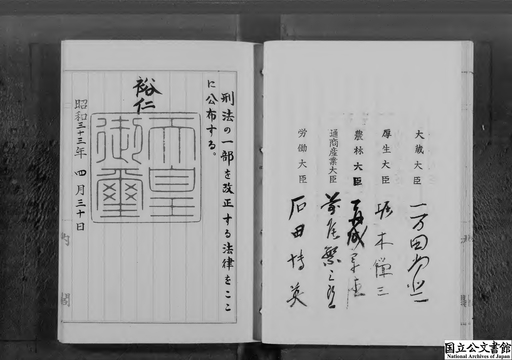 刑法の一部を改正する法律をここ
に公布する。
裕仁
天皇
御璽
昭和三十三年 四月三十日
大蔵大臣 一万田尚登
厚生大臣 堀木鎌三
農林大臣 赤城宗徳
通商産業大臣 前尾繁三郎
労働大臣 石田博英
国立公文書館
National Archives of Japan